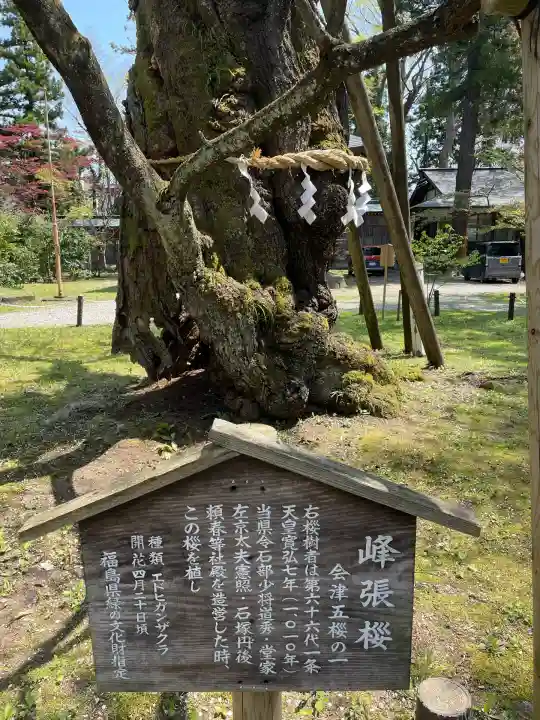 峰張桜
会津五桜の一
右桜樹者は第六十六代一条
天皇寛弘七年(一〇一〇年)
当県令石部少将道秀・堂家
左京太夫憲照・石塚丹後
頼春等社殿を造営した時、
この桜を植し
種類 エドヒガンザクラ
開花四月二十日頃
福島県緑の文化財指定